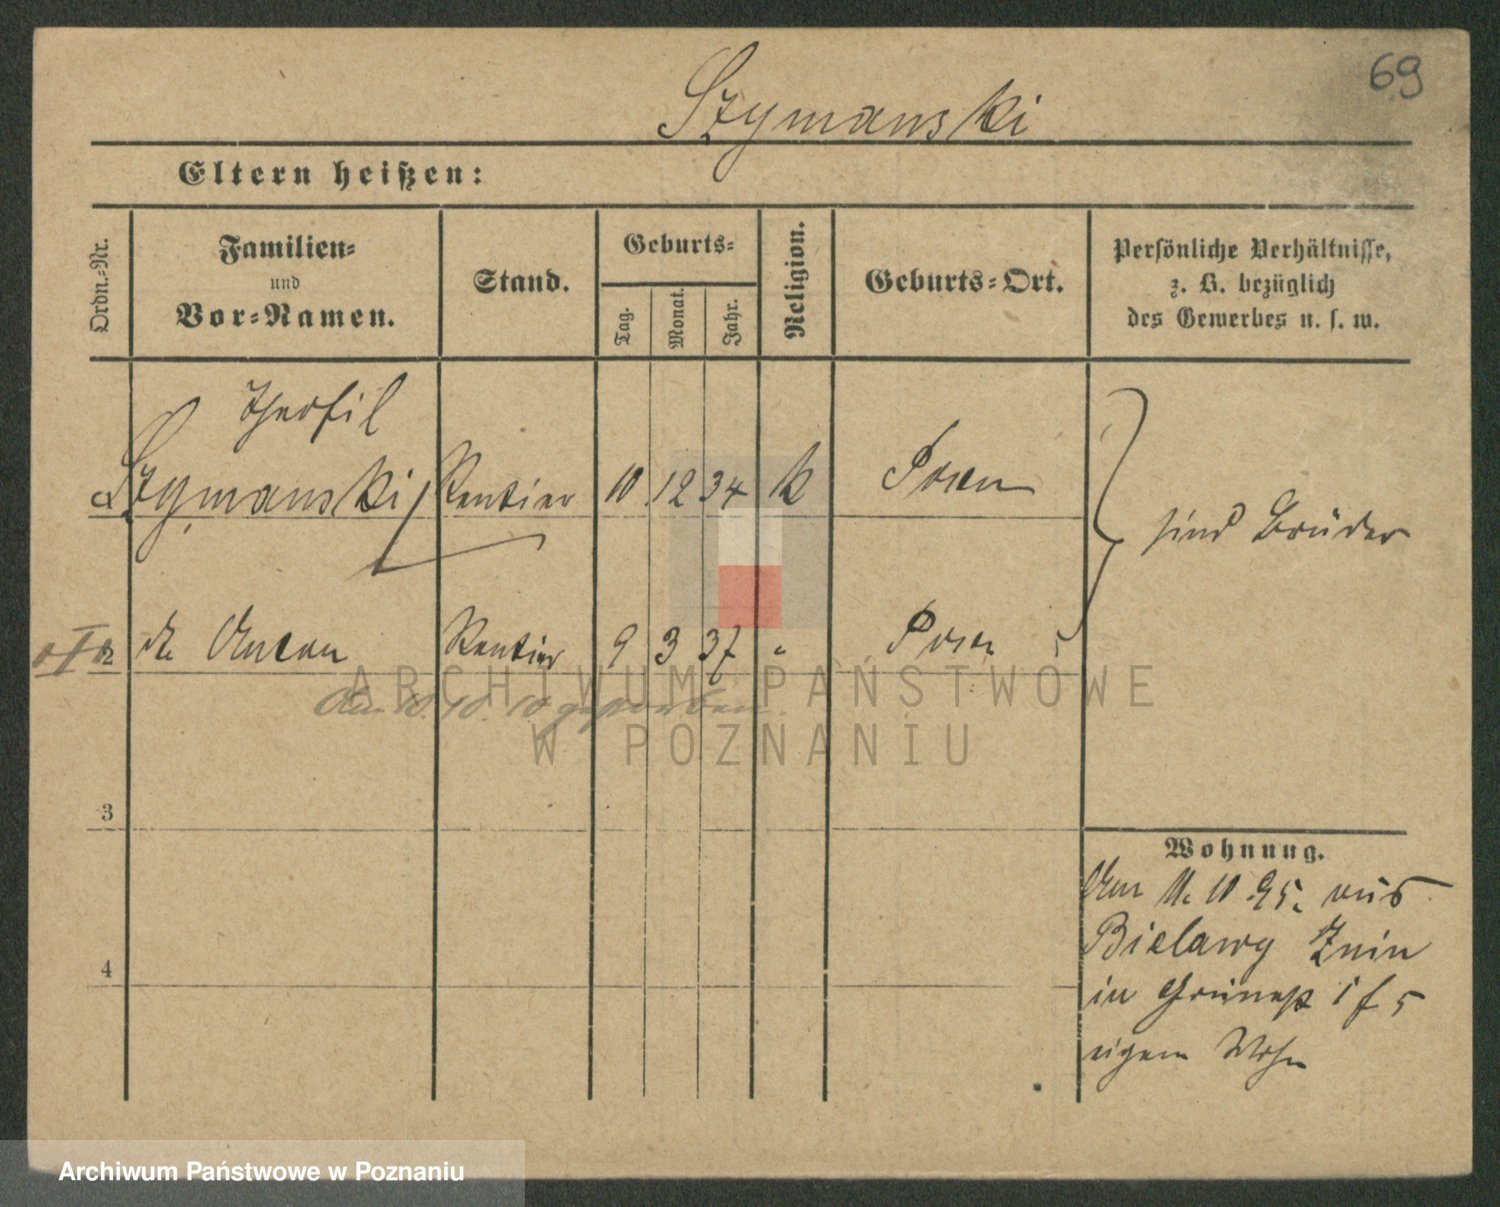 69
Szymanski
Eltern heißen:
Ordn.-Nr.
Familien-
und
Vor-Namen.
Stand.
Geburts-
Tag.
Monat.
Jahr.
Religion.
Geburts-Ort.
Persönliche Verhältnisse,
z. B. bezüglich
des Gewerbes u. s. w.
Theofil
Szymanski Rentier 10 12 34 k Posen
sind Brüder
2 Anton Rentier 9 3 37 " Posen
gestorben
3
4
Wohnung.
Am 11. 10. 95. aus
Bielawy Znin
in Grünestr
eigene Wohn
ARCHIWUM PAŃSTWOWE
W POZNANIU
Archiwum Państwowe w Poznaniu